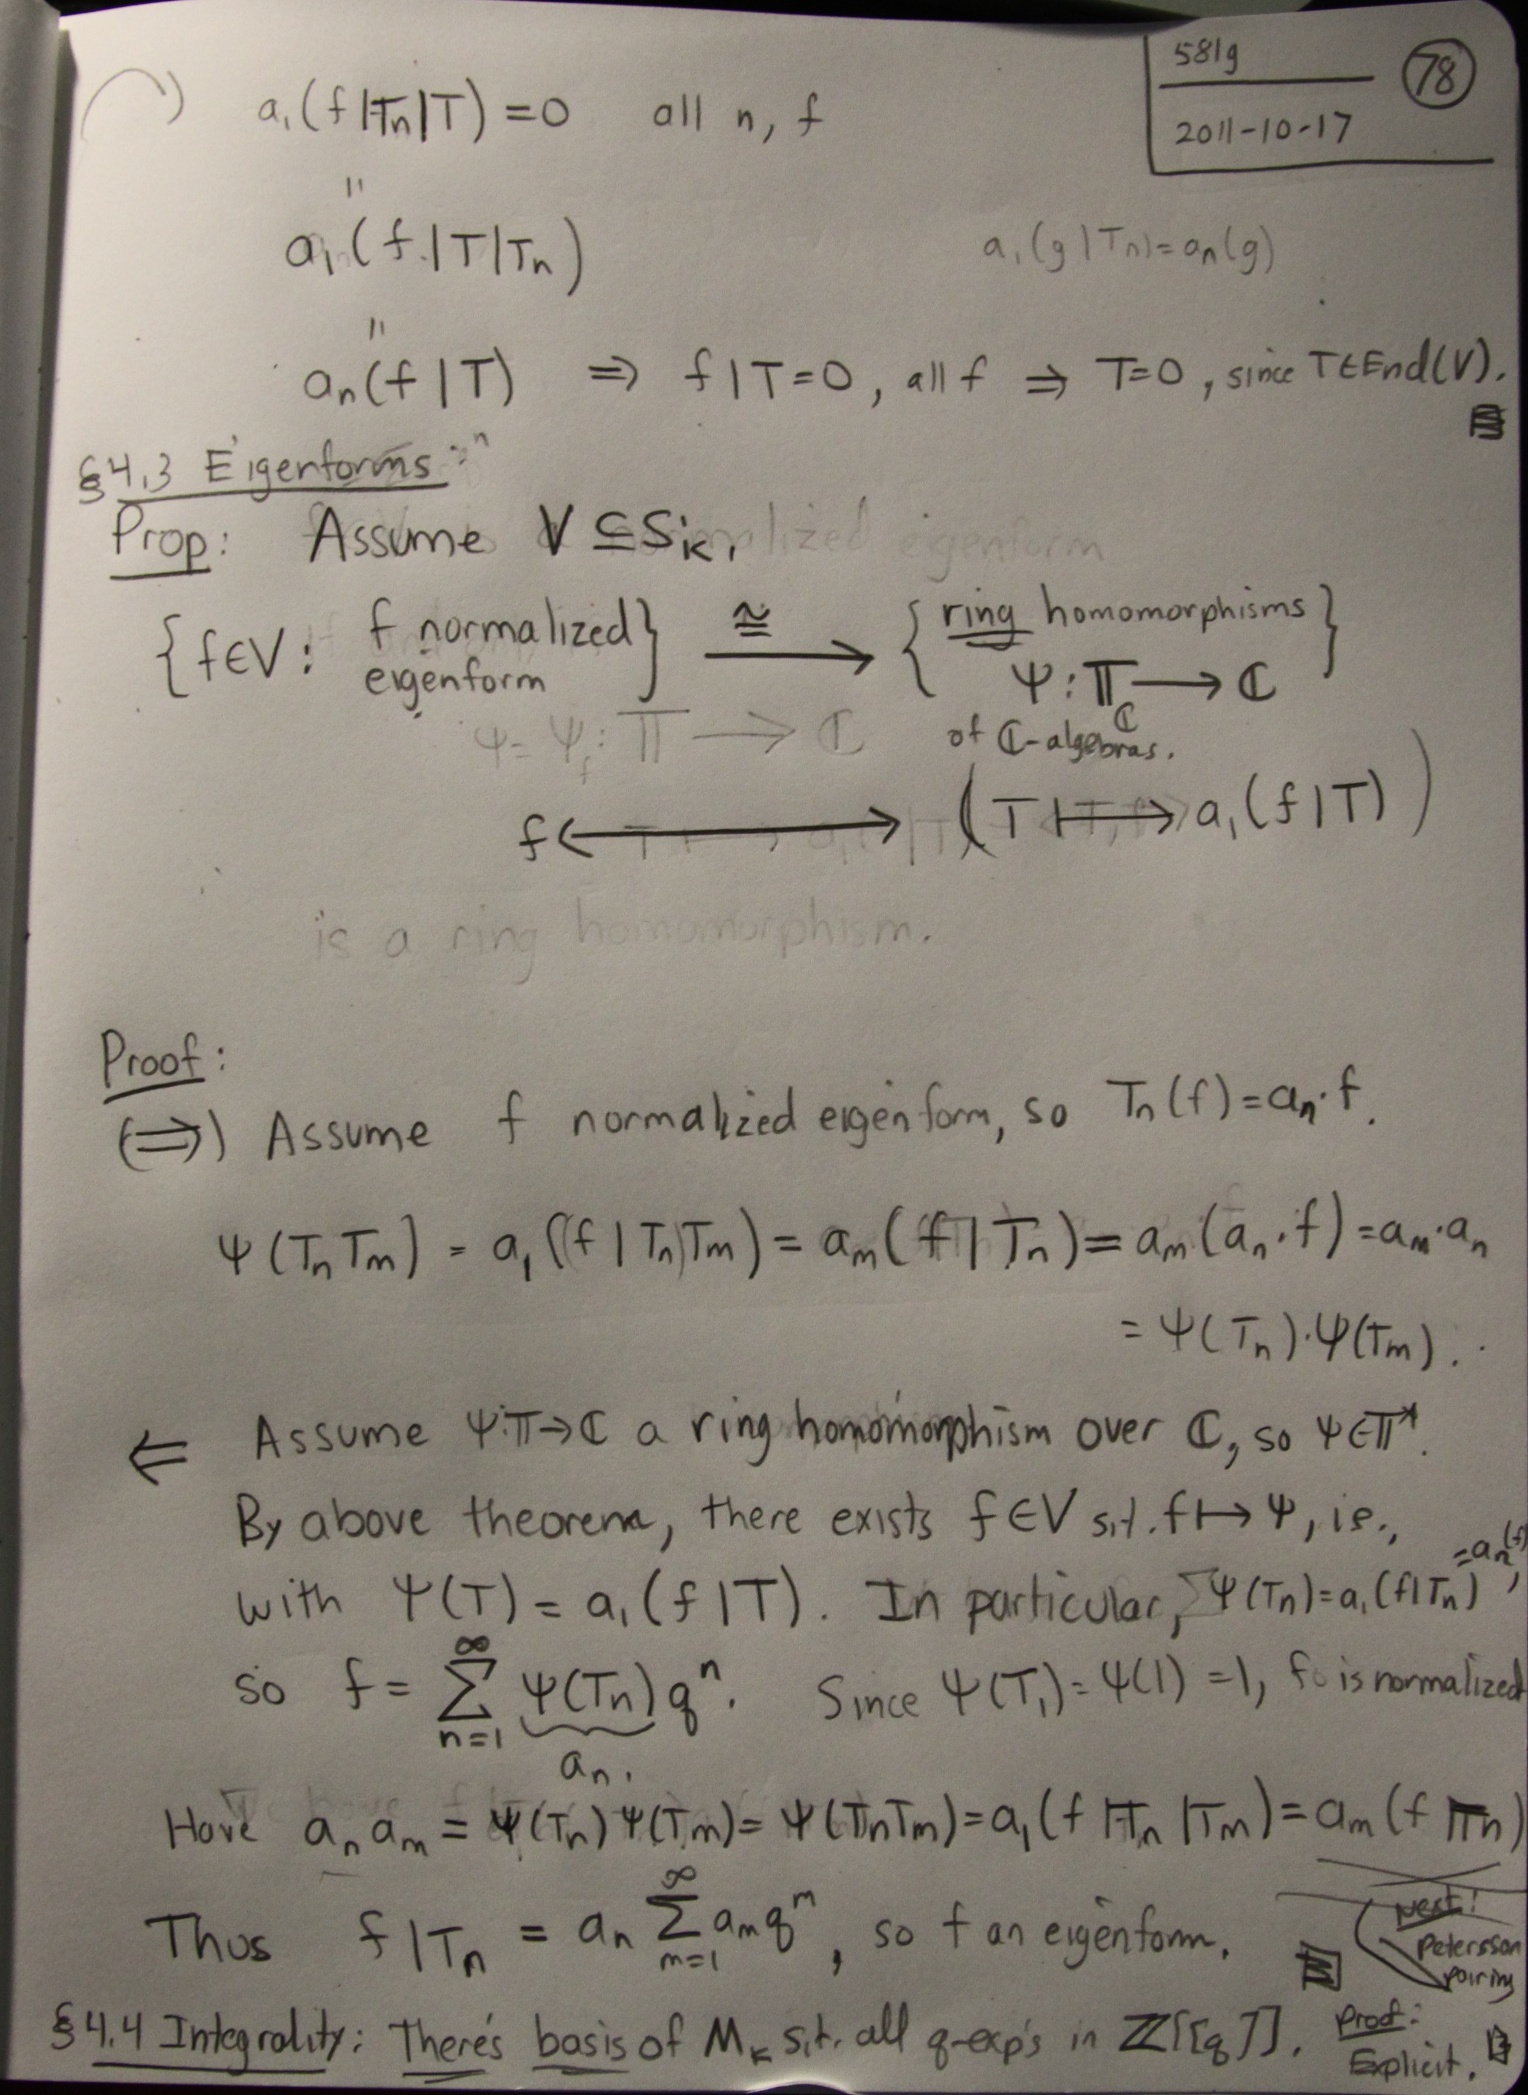 581g
78
2011-10-17
a₁(f|Tₙ|T) = 0 all n, f
"
a₁(f|T|Tₙ) a₁(g|Tₙ)=aₙ(g)
"
aₙ(f|T) ⇒ f|T=0, all f ⇒ T=0, since T∈End(V).
§4.3 Eigenforms:
Prop: Assume V ⊆ Sₖ.
{f∈V: f normalized eigenform} ≅⟶ {ring homomorphisms Ψ: 𝕋_ℂ ⟶ ℂ}
of ℂ-algebras.
f ⟷ (T ⟼ a₁(f|T))
is a ring homomorphism.
Proof:
(⇒) Assume f normalized eigenform, so Tₙ(f)=aₙ·f.
Ψ(TₙTₘ) = a₁((f|Tₙ)Tₘ) = aₘ(f|Tₙ) = aₘ(aₙ·f) = aₘ·aₙ
= Ψ(Tₙ)·Ψ(Tₘ).
⇐ Assume Ψ:𝕋→ℂ a ring homomorphism over ℂ, so Ψ∈𝕋*.
By above theorem, there exists f∈V s.t. f↦Ψ, i.e.,
with Ψ(T) = a₁(f|T). In particular, Ψ(Tₙ)=a₁(f|Tₙ) =aₙ(f),
so f = ∑_{n=1}^∞ Ψ(Tₙ)qⁿ. Since Ψ(T₁)=Ψ(1)=1, f is normalized
aₙ.
Have aₙaₘ = Ψ(Tₙ)Ψ(Tₘ) = Ψ(TₙTₘ) = a₁(f|Tₙ|Tₘ) = aₘ(f|Tₙ)
Thus f|Tₙ = aₙ ∑_{m=1}^∞ aₘqᵐ, so f an eigenform.
Next!
Petersson
pairing
§4.4 Integrality: There's basis of Mₖ s.t. all q-exp's in ℤ[[q]]. Proof:
Explicit.